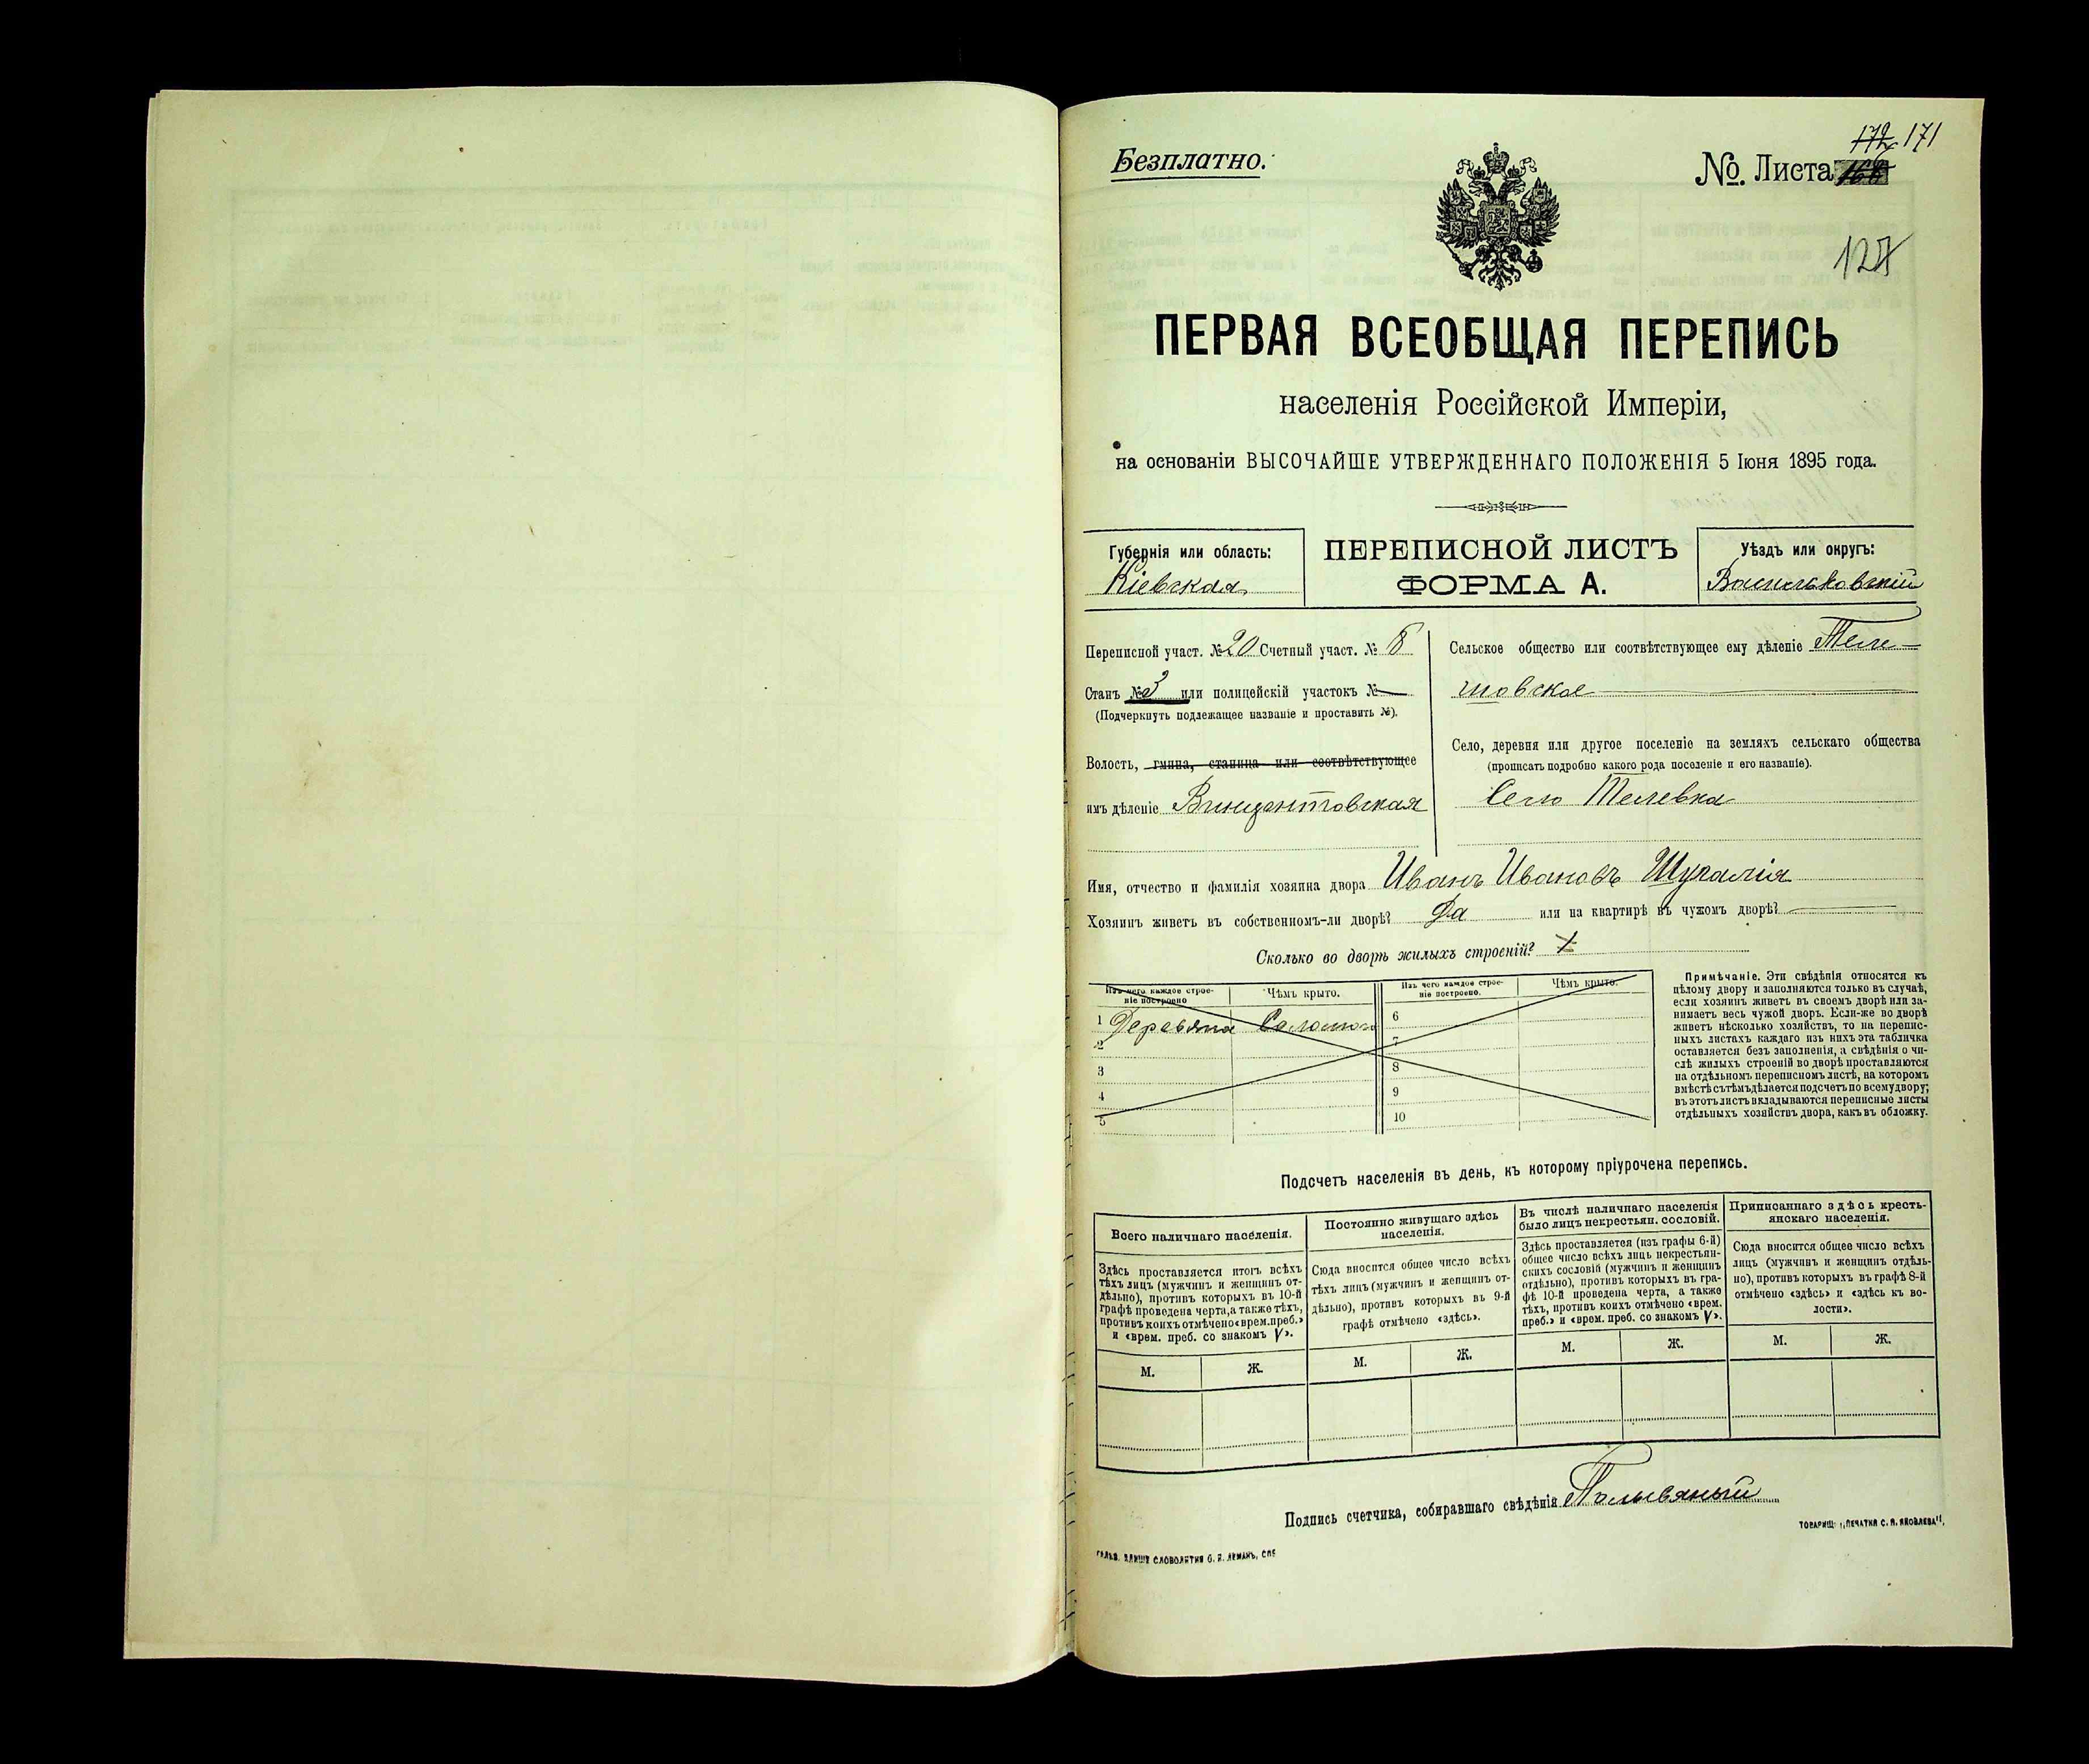 Безплатно.
172 171
№ Листа
127
ПЕРВАЯ ВСЕОБЩАЯ ПЕРЕПИСЬ
населенія Россійской Имперіи,
на основаніи ВЫСОЧАЙШЕ УТВЕРЖДЕННАГО ПОЛОЖЕНІЯ 5 Іюня 1895 года.
Губернія или область:
Кіевская
ПЕРЕПИСНОЙ ЛИСТЪ
ФОРМА А.
Уѣздъ или округъ:
Васильковскій
Переписной участ. № 20 Счетный участ. № 8
Станъ № 3 или полицейскій участокъ № —
(Подчеркнуть подлежащее названіе и проставить №).
Волость, гмина, станица или соотвѣтствующее
имъ дѣленіе Винцентовская
Сельское общество или соотвѣтствующее ему дѣленіе
Село, деревня или другое поселеніе на земляхъ сельскаго общества
(прописать подробно какого рода поселеніе и его названіе).
Село
Имя, отчество и фамилія хозяина двора Иванъ Ивановъ Шугалія
Хозяинъ живетъ въ собственномъ-ли дворѣ? Да или на квартирѣ въ чужомъ дворѣ? —
Сколько во дворѣ жилыхъ строеній?
Изъ чего каждое строе-
ніе построено
Чѣмъ крыто.
Изъ чего каждое строе-
ніе построено.
Чѣмъ крыто.
1 Деревяна Соломою
2
3
4
5
6
7
8
9
10
Примѣчаніе. Эти свѣдѣнія относятся къ
цѣлому двору и заполняются только въ случаѣ,
если хозяинъ живетъ въ своемъ дворѣ или за-
нимаетъ весь чужой дворъ. Если-же во дворѣ
живетъ нѣсколько хозяйствъ, то на перепис-
ныхъ листахъ каждаго изъ нихъ эта табличка
оставляется безъ заполненія, а свѣдѣнія о чи-
слѣ жилыхъ строеній во дворѣ проставляются
на отдѣльномъ переписномъ листѣ, на которомъ
вмѣстѣ съ тѣмъ дѣлается подсчетъ по всему двору;
въ этотъ листъ вкладываются переписные листы
отдѣльныхъ хозяйствъ двора, какъ въ обложку.
Подсчетъ населенія въ день, къ которому пріурочена перепись.
Всего наличнаго населенія.
Здѣсь проставляется итогъ всѣхъ
тѣхъ лицъ (мужчинъ и женщинъ от-
дѣльно), противъ которыхъ въ 10-й
графѣ проведена черта, а также тѣхъ,
противъ коихъ отмѣчено «врем. преб.»
и «врем. преб. со знакомъ V».
М. Ж.
Постоянно живущаго здѣсь
населенія.
Сюда вносится общее число всѣхъ
тѣхъ лицъ (мужчинъ и женщинъ от-
дѣльно), противъ которыхъ въ 9-й
графѣ отмѣчено «здѣсь».
М. Ж.
Въ числѣ наличнаго населенія
было лицъ некрестьян. сословій.
Здѣсь проставляется (изъ графы 6-й)
общее число всѣхъ лицъ некрестьян-
скихъ сословій (мужчинъ и женщинъ
отдѣльно), противъ которыхъ въ гра-
фѣ 10-й проведена черта, а также
тѣхъ, противъ коихъ отмѣчено «врем.
преб.» и «врем. преб. со знакомъ V».
М. Ж.
Приписаннаго здѣсь кресть-
янскаго населенія.
Сюда вносится общее число всѣхъ
лицъ (мужчинъ и женщинъ отдѣль-
но), противъ которыхъ въ графѣ 8-й
отмѣчено «здѣсь» и «здѣсь къ во-
лости».
М. Ж.
Подпись счетчика, собиравшаго свѣдѣнія
ТОВАРИЩ. „ПЕЧАТНЯ С. П. ЯКОВЛЕВА“.
СЛОВОЛИТНЯ О. И. ЛЕМАНЪ, СПБ